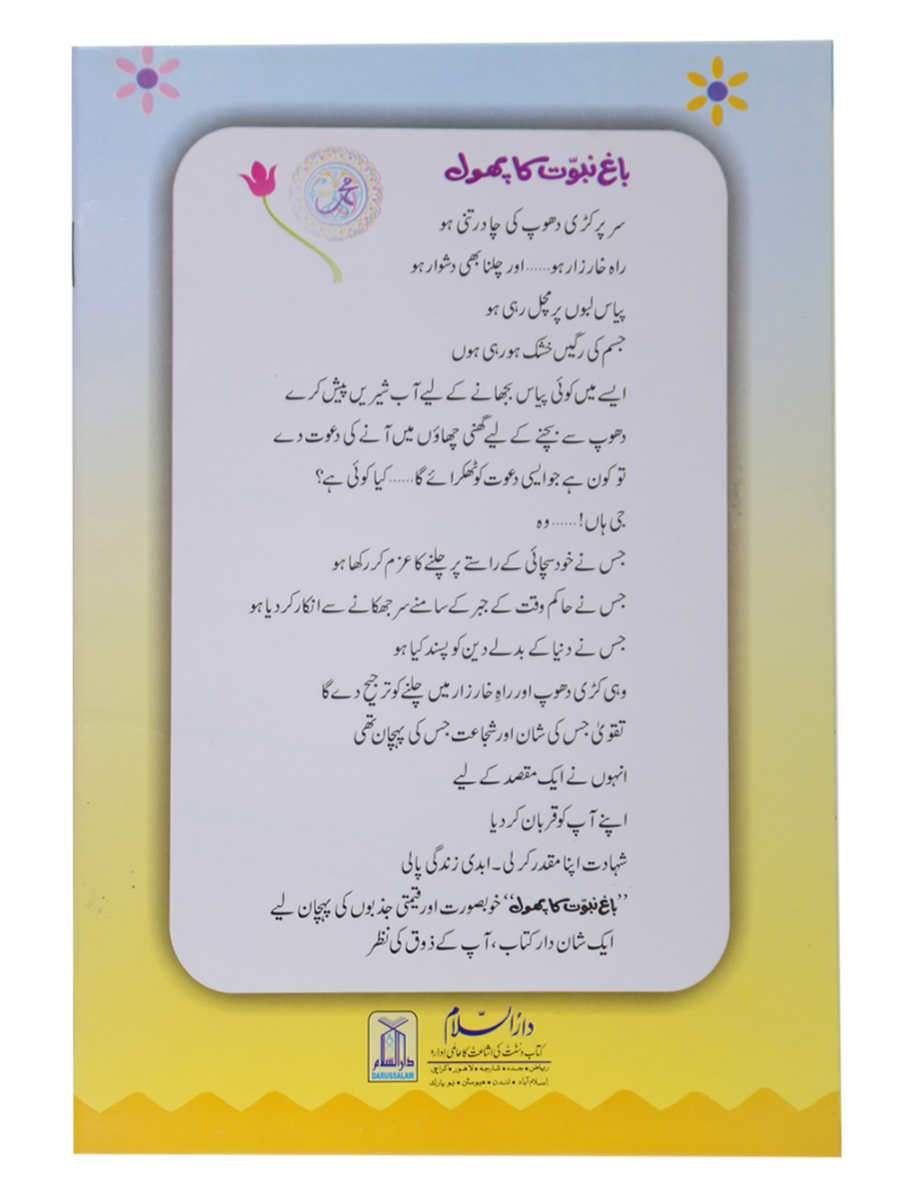 باغِ نبوّت کا پھول
محمد
سر پر کڑی دھوپ کی چادر تنی ہو
راہ خارزار ہو...... اور چلنا بھی دشوار ہو
پیاس لبوں پر مچل رہی ہو
جسم کی رگیں خشک ہو رہی ہوں
ایسے میں کوئی پیاس بجھانے کے لیے آب شیریں پیش کرے
دھوپ سے بچنے کے لیے گھنی چھاؤں میں آنے کی دعوت دے
تو کون ہے جو ایسی دعوت کو ٹھکرائے گا...... کیا کوئی ہے؟
جی ہاں! ...... وہ
جس نے خود سچائی کے راستے پر چلنے کا عزم کر رکھا ہو
جس نے حاکم وقت کے جبر کے سامنے سر جھکانے سے انکار کر دیا ہو
جس نے دنیا کے بدلے دین کو پسند کیا ہو
وہی کڑی دھوپ اور راہِ خارزار میں چلنے کو ترجیح دے گا
تقویٰ جس کی شان اور شجاعت جس کی پہچان تھی
انہوں نے ایک مقصد کے لیے
اپنے آپ کو قربان کر دیا
شہادت اپنا مقدر کر لی۔ ابدی زندگی پالی
"باغِ نبوّت کا پھول" خوبصورت اور قیمتی جذبوں کی پہچان لیے
ایک شان دار کتاب، آپ کے ذوق کی نظر
دارُالسّلام
کتاب و سُنّت کی اشاعت کا عالمی اِدارہ
ریاض • جدہ • شارجہ • لاهور • کراچی
اِسلام آباد • لندن • هیوسٹن • نیو یارک
دارالسلام
DARUSSALAM